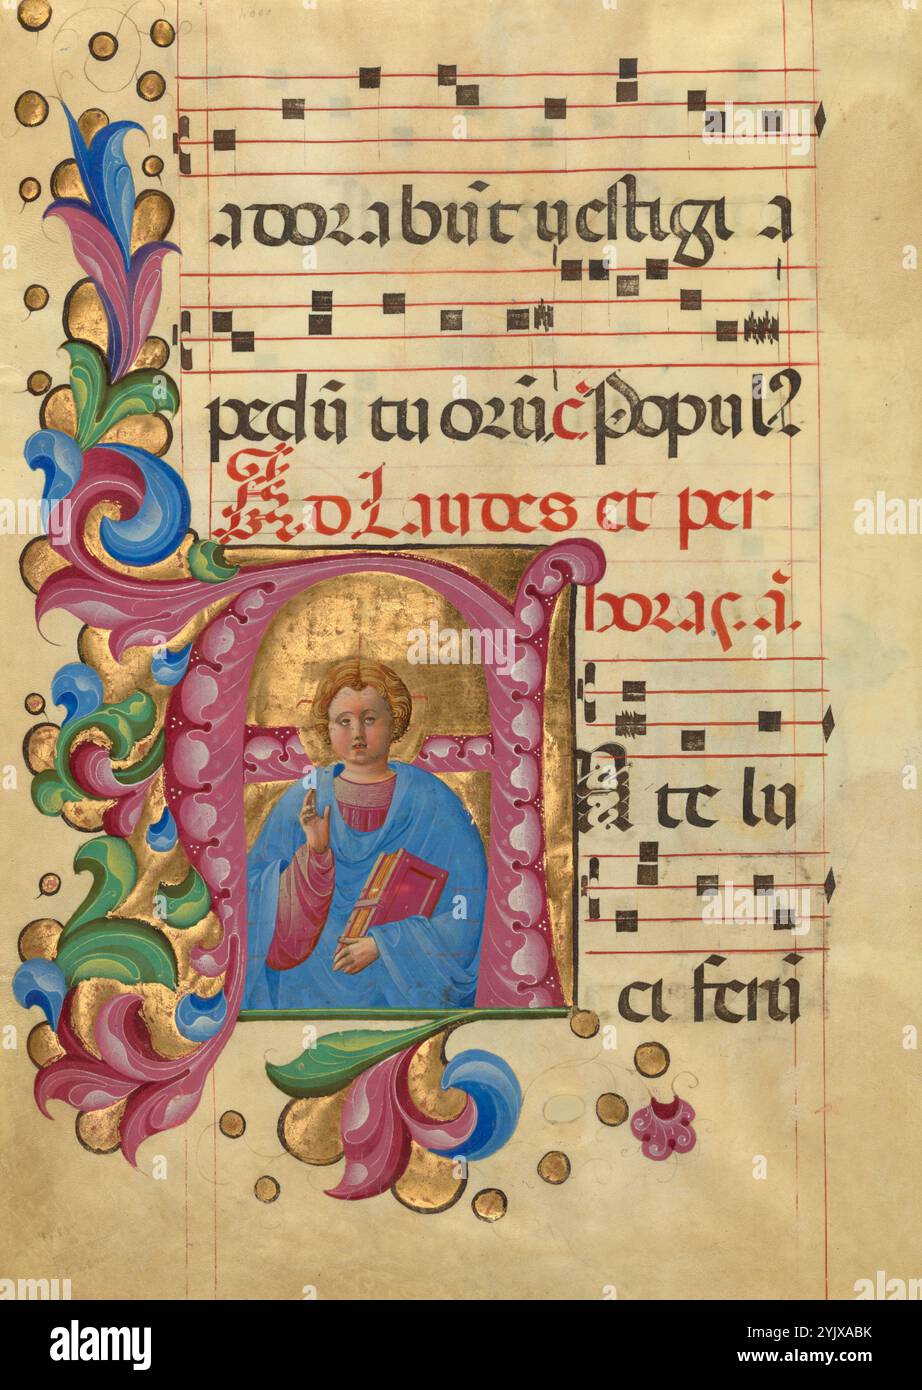 adorabūt uestigi a
pedū tu orū. c̄ Popul
Ad Laudes et per
horas. añ.
Ante lu
ciferū
alamy
Image ID: 2YJXABK
www.alamy.com